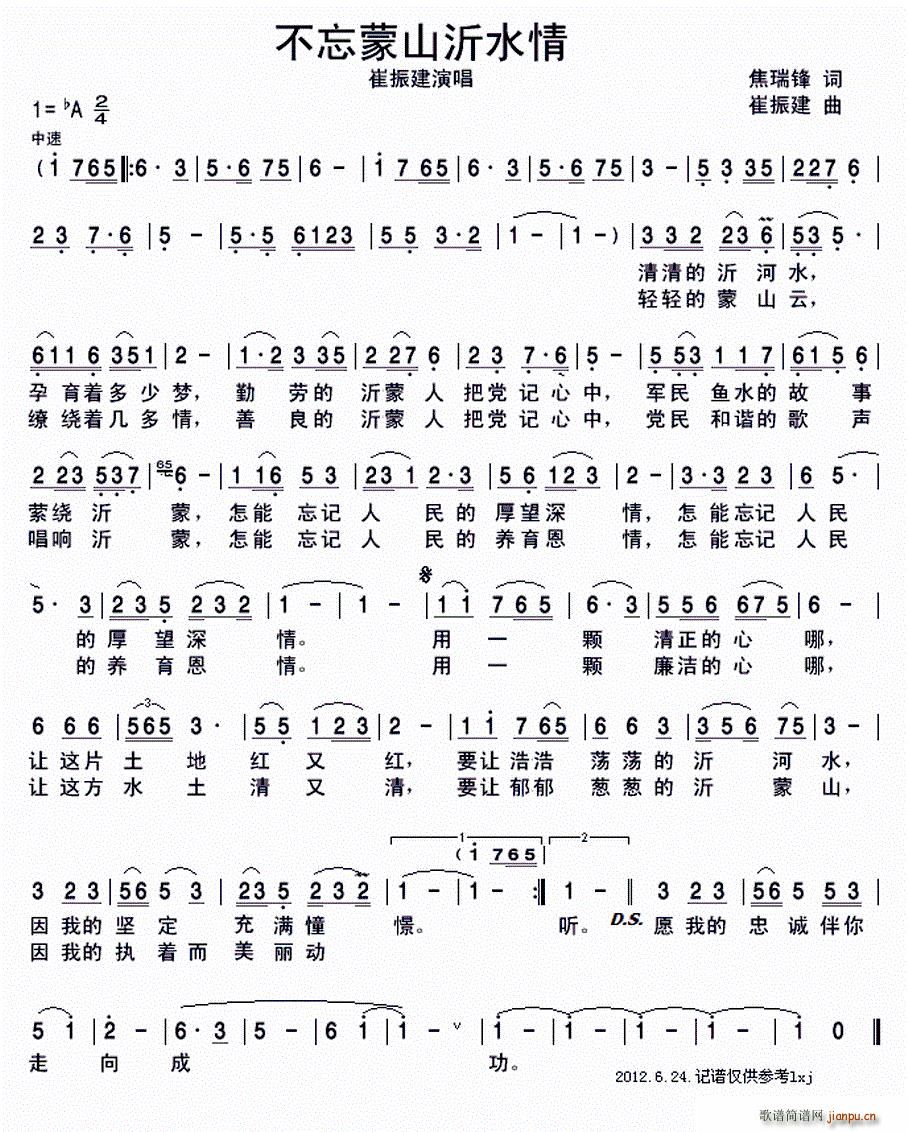 不忘蒙山沂水情
崔振建演唱
焦瑞锋 词
1=♭A 2/4
崔振建 曲
中速
(i 765 ‖: 6· 3 | 5·6 75 | 6 - | i 7 65 | 6· 3 | 5·6 75 | 3 - | 5 3 35 | 227 6 |
2 3 7·6 | 5 - | 5·5 6123 | 55 3·2 | 1 - | 1 - ) | 3 3 2 23 6 | 53 5· |
清清的沂河水,
轻轻的蒙山云,
611 6 351 | 2 - | 1·2 3 35 | 2 27 6 | 2 3 7·6 | 5 - | 5 53 1 1 7 | 61 5 6 |
孕育着多少梦, 勤劳的沂蒙人把党记心中, 军民鱼水的故事
缭绕着几多情, 善良的沂蒙人把党记心中, 党民和谐的歌声
2 23 537 | 65 6 - | 1 16 5 3 | 23 1 2·3 | 5 6 123 | 2 - | 3·3 2 3 | 6 5· |
萦绕沂蒙, 怎能忘记人民的厚望深情, 怎能忘记人民
唱响沂蒙, 怎能忘记人民的养育恩情, 怎能忘记人民
5· 3 | 23 5 232 | 1 - | 1 - | 11 765 | 6·3 | 556 675 | 6 - |
的厚望深情。 用一颗清正的心哪,
的养育恩情。 用一颗廉洁的心哪,
6 6 6 | 3 565 3· | 55 123 | 2 - | 1 i 7 65 | 6 6 3 | 356 75 | 3 - |
让这片土地红又红, 要让浩浩荡荡的沂河水,
让这方水土清又清, 要让郁郁葱葱的沂蒙山,
1 (i 765 | 2
3 2 3 | 56 5 3 | 23 5 232 | 1 - | 1 - :‖ 1 - ‖ 3 2 3 | 56 5 53 |
因我的坚定充满憧憬。 听。 D.S. 愿我的忠诚伴你
因我的执着而美丽动
5 i | 2 - | 6·3 | 5 - | 6 i | i - ∨ | i - | i - | i - | i - | i 0 ‖
走向成功。
2012.6.24.记谱仅供参考lxj
歌谱简谱网 jianpu.cn